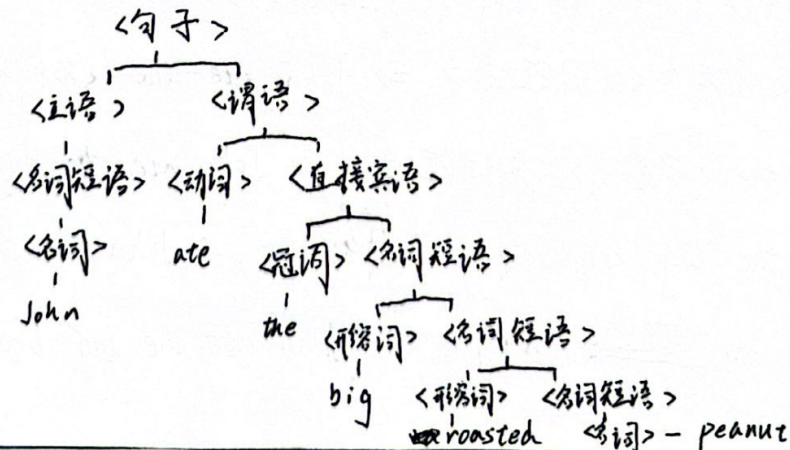 <句子>
<主语> <谓语>
<名词短语> <动词> <直接宾语>
<名词> ate <冠词> <名词短语>
John the <形容词> <名词短语>
big <形容词> <名词短语>
roasted <名词> — peanut